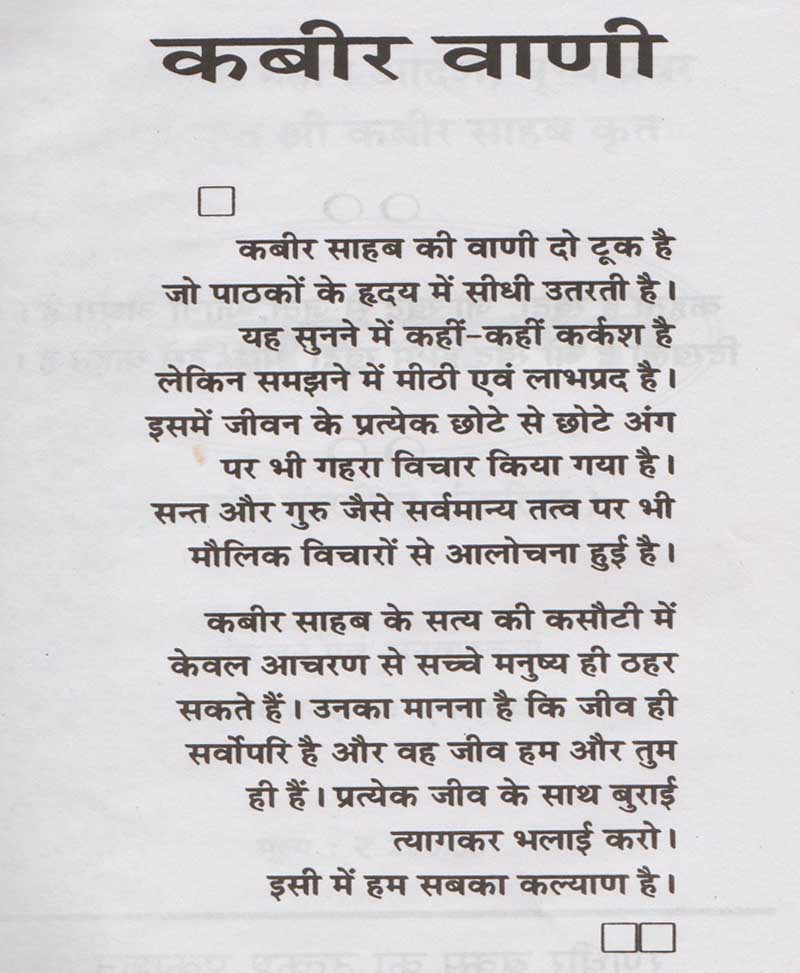 कबीर वाणी
कबीर साहब की वाणी दो टूक है
जो पाठकों के हृदय में सीधी उतरती है।
यह सुनने में कहीं-कहीं कर्कश है
लेकिन समझने में मीठी एवं लाभप्रद है।
इसमें जीवन के प्रत्येक छोटे से छोटे अंग
पर भी गहरा विचार किया गया है।
सन्त और गुरु जैसे सर्वमान्य तत्व पर भी
मौलिक विचारों से आलोचना हुई है।
कबीर साहब के सत्य की कसौटी में
केवल आचरण से सच्चे मनुष्य ही ठहर
सकते हैं। उनका मानना है कि जीव ही
सर्वोपरि है और वह जीव हम और तुम
ही हैं। प्रत्येक जीव के साथ बुराई
त्यागकर भलाई करो।
इसी में हम सबका कल्याण है।